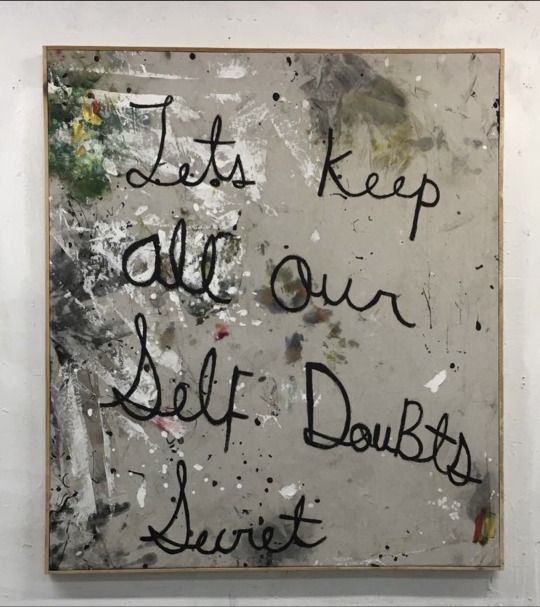 Lets keep
all our
Self DouBts
Secret